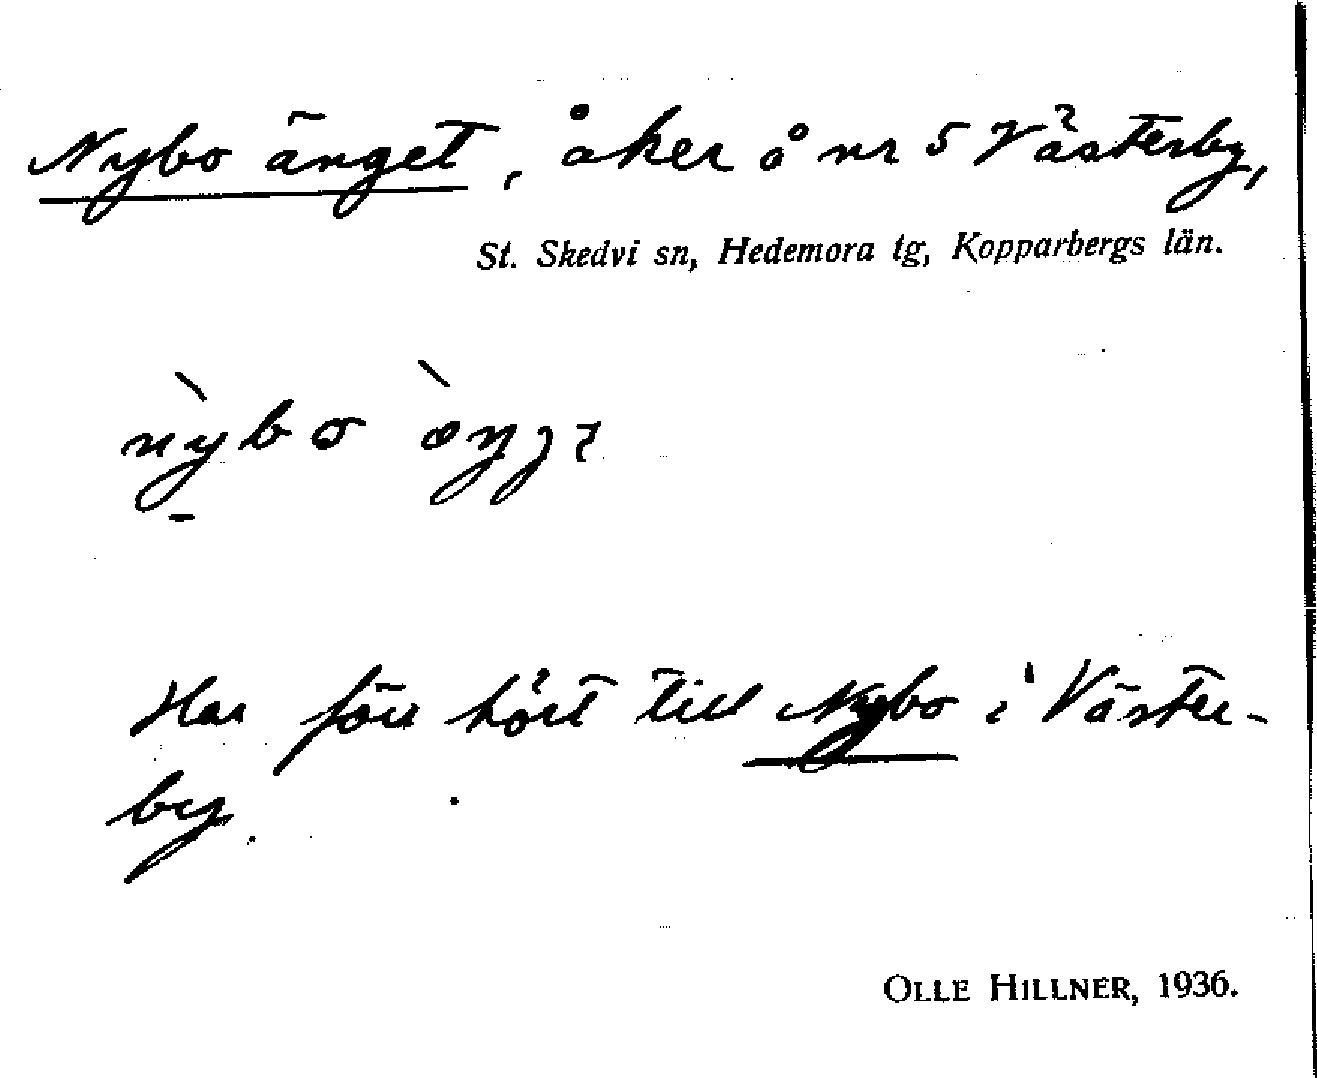 Nybo änget, åker å nr 5 Västerby,
St. Skedvi sn, Hedemora tg, Kopparbergs län.
Har förr hört till Nybo i Väster-
by.
OLLE HILLNER, 1936.